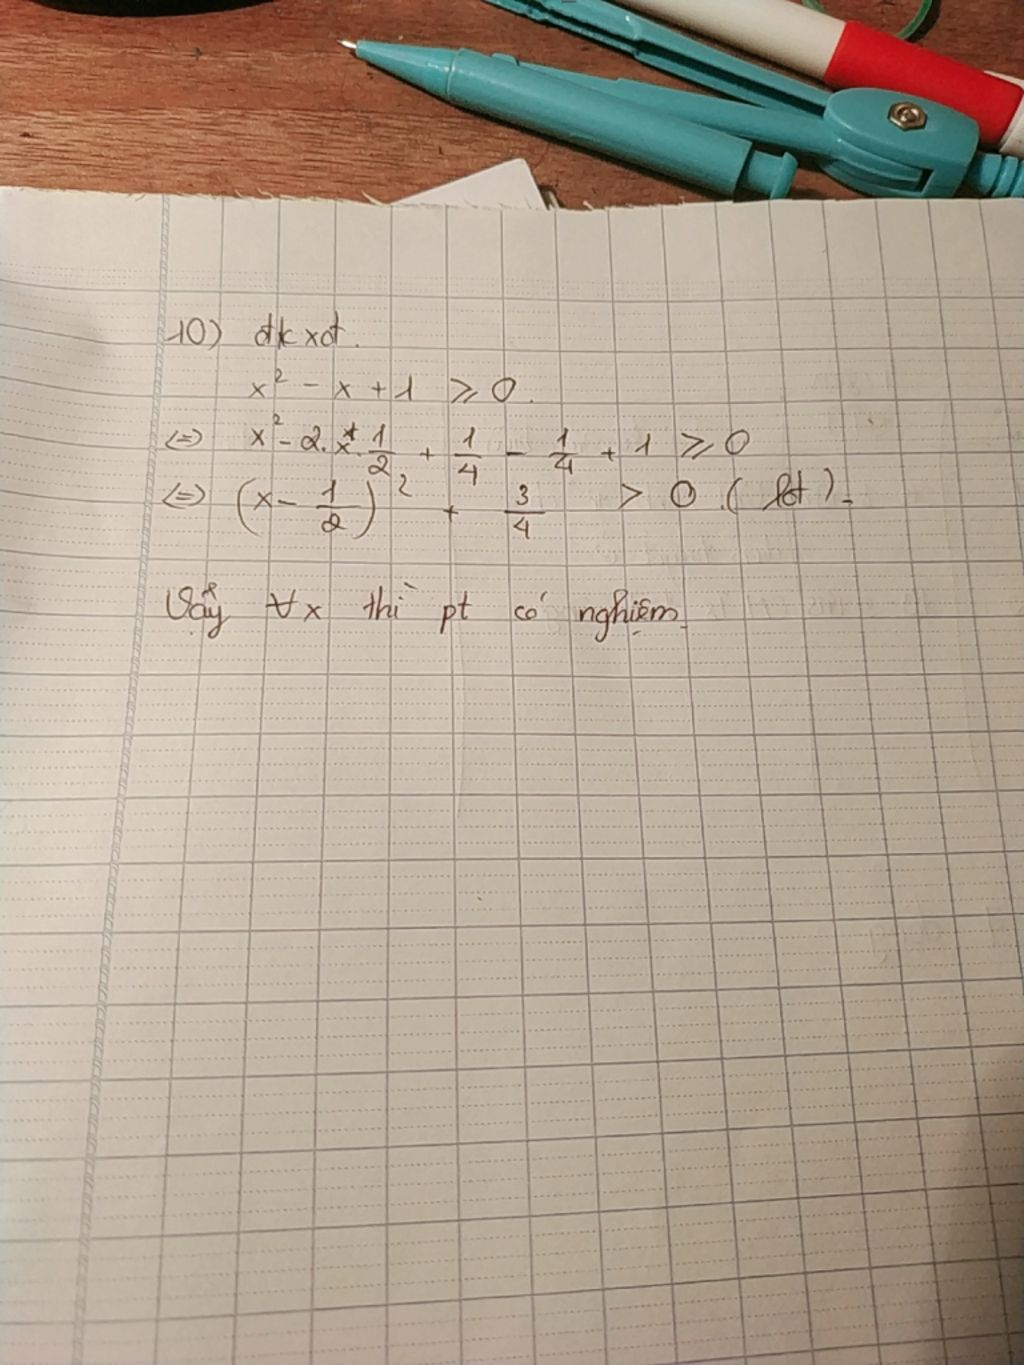 10) đkxđ.
x² - x + 1 ⩾ 0.
(=) x² - 2.x.1/2 + 1/4 - 1/4 + 1 ⩾ 0
(=) (x - 1/2)² + 3/4 > 0 (lđ).
Vậy ∀x thì pt có nghiệm.